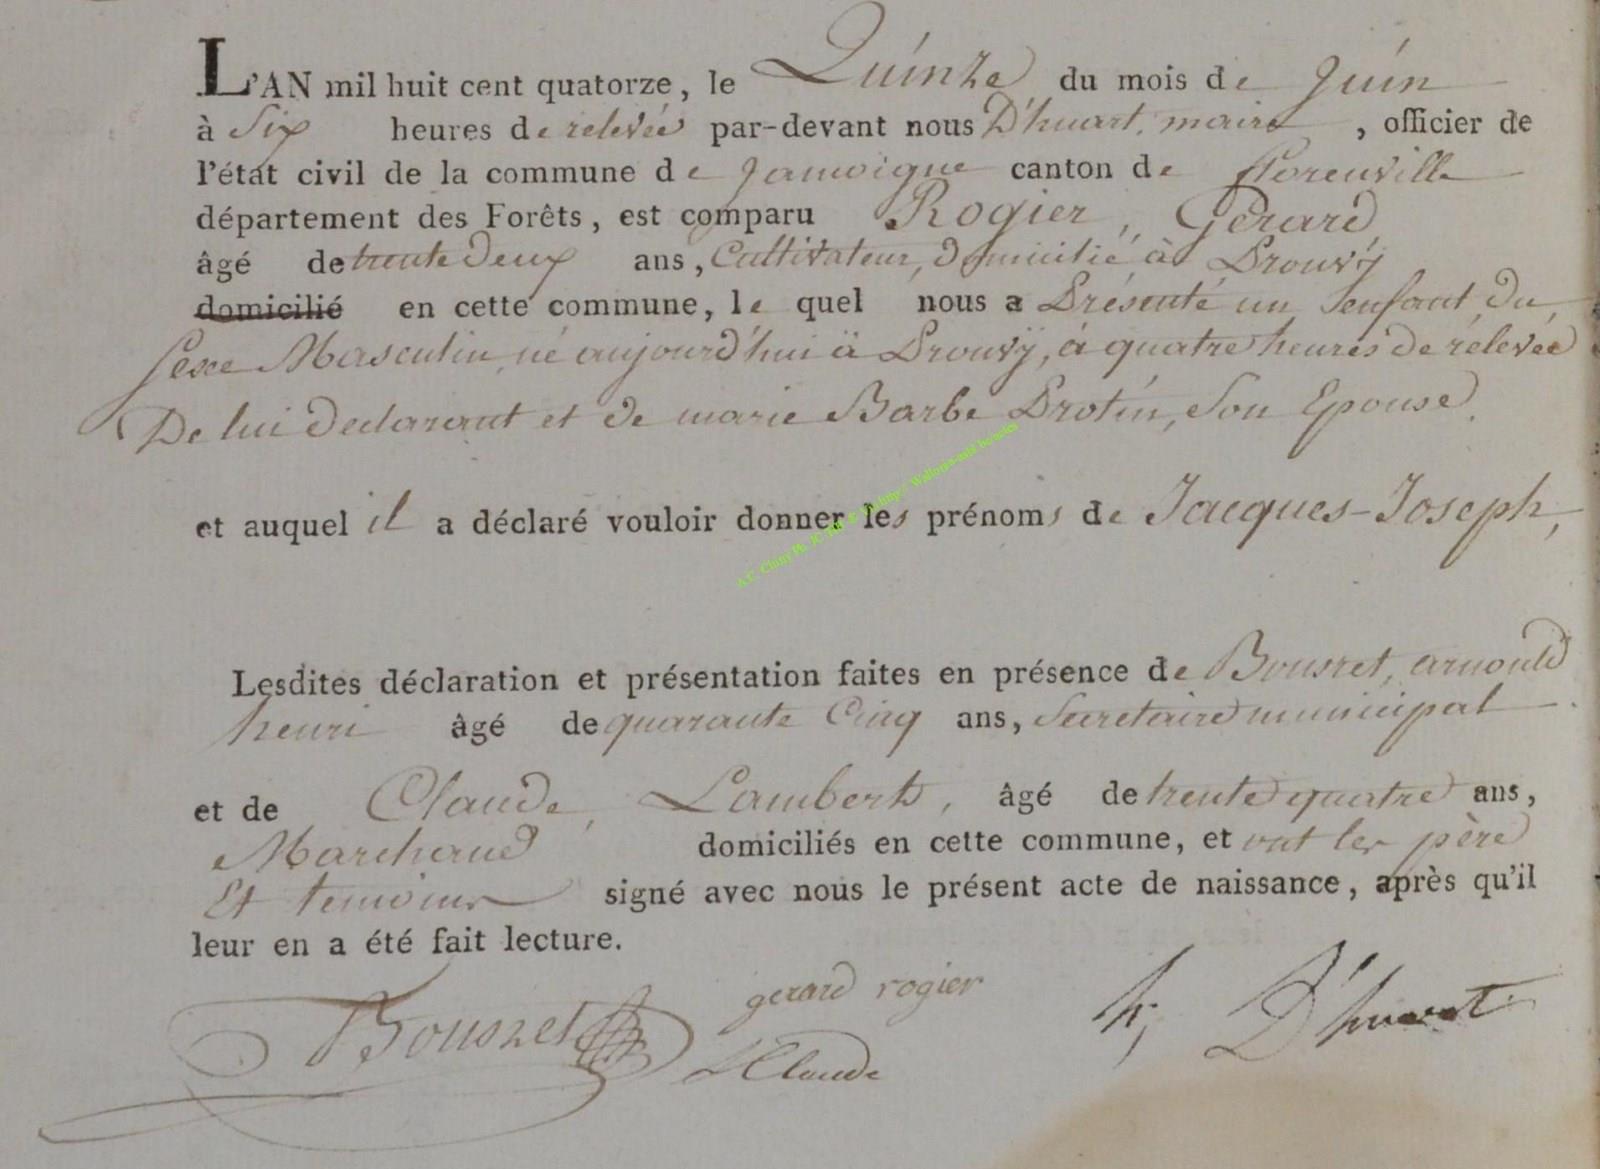 L'AN mil huit cent quatorze, le Quinze du mois de Juin
à Six heures de relevée par-devant nous D'huart, maire, officier de
l'état civil de la commune de Jamoigne canton de Florenville
département des Forêts, est comparu Rogier, Gérard
âgé de trente deux ans, Cultivateur, domicilié à Prouvÿ
domicilié en cette commune, le quel nous a Présenté un Enfant du
Sexe Masculin, né aujourd'hui à Prouvÿ, à quatre heures de rélévée
De lui declarant et de marie Barbe Protin, Son Epouse.
et auquel il a déclaré vouloir donner les prénoms de Jacques-Joseph,
A.C. Chiny Ph. JC
Lesdites déclaration et présentation faites en présence de Bousret, arnould
henri âgé de quarante Cinq ans, Secretaire municipal
et de Claude, Lambert, âgé de trente quatre ans,
Marchand domiciliés en cette commune, et ont les père
Et temoins signé avec nous le présent acte de naissance, après qu'il
leur en a été fait lecture.
Bousret gerard rogier h, D'huart
LClaude